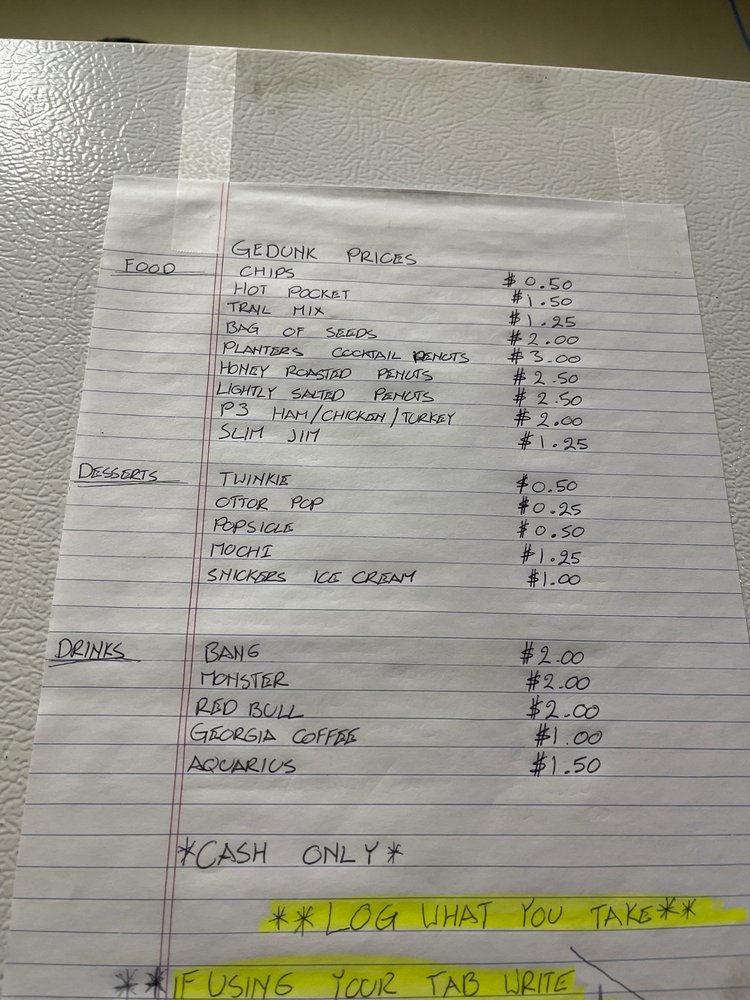 GEDUNK PRICES
FOOD CHIPS $0.50
HOT POCKET $1.50
TRAIL MIX $1.25
BAG OF SEEDS $2.00
PLANTERS COCKTAIL PENUTS $3.00
HONEY ROASTED PENUTS $2.50
LIGHTLY SALTED PENUTS $2.50
P3 HAM/CHICKEN/TURKEY $2.00
SLIM JIM $1.25
DESSERTS TWINKIE $0.50
OTTOR POP $0.25
POPSICLE $0.50
MOCHI $1.25
SNICKERS ICE CREAM $1.00
DRINKS BANG $2.00
MONSTER $2.00
RED BULL $2.00
GEORGIA COFFEE $1.00
AQUARIUS $1.50
*CASH ONLY*
**LOG WHAT YOU TAKE**
**IF USING YOUR TAB WRITE